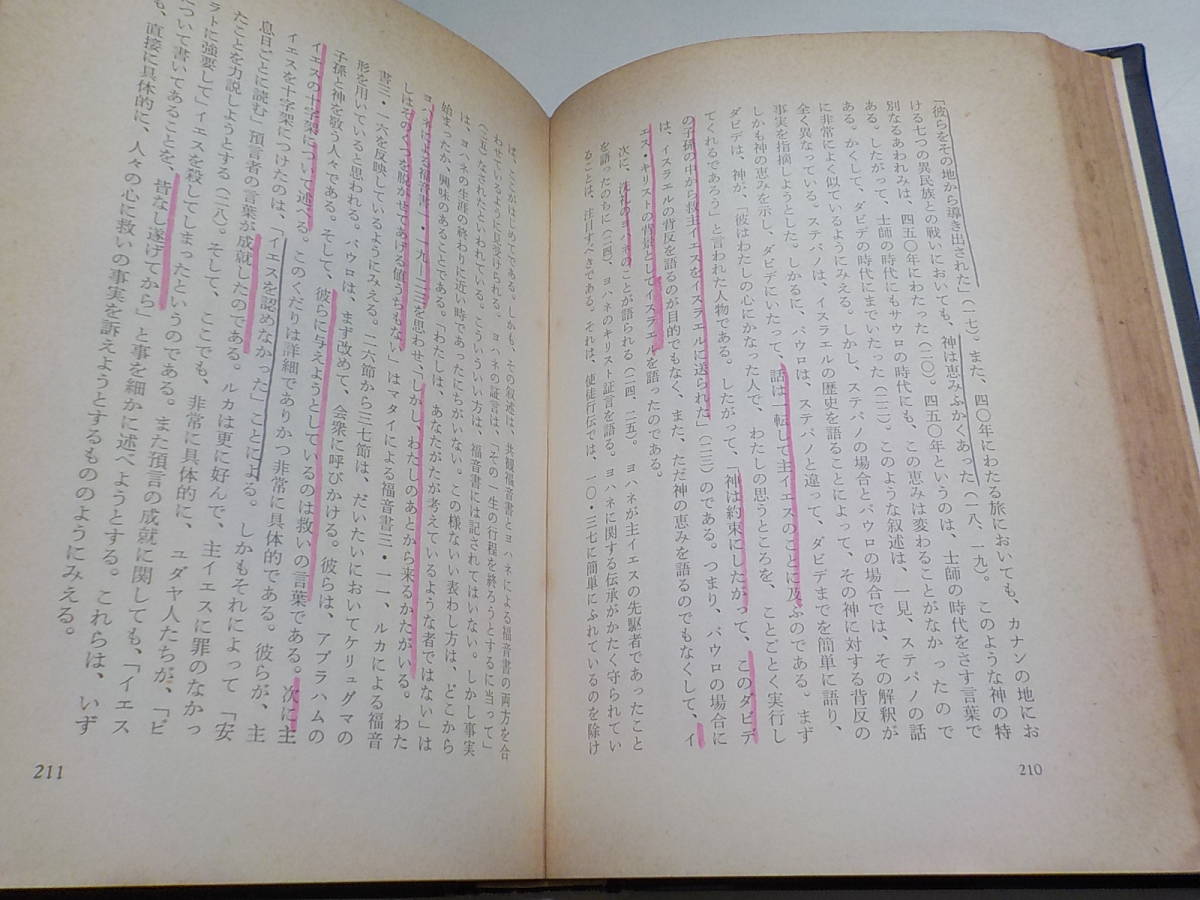 「彼らをその地から導き出された」(一七)。また、四〇年にわたる旅においても、カナンの地にお
ける七つの異民族との戦いにおいても、神は恵みふかくあった(一八、一九)。このような神の特
別なるあわれみは、四五〇年にわたった(二〇)。四五〇年というのは、士師の時代をさす言葉で
ある。したがって、士師の時代にもサウロの時代にも、この恵みは変わることがなかったので
ある。かくして、ダビデの時代にまでいたった(二二)。このような叙述は、一見、ステパノの話
に非常によく似ているようにみえる。しかし、ステパノの場合とパウロの場合では、その解釈が
全く異なっている。ステパノは、イスラエルの歴史を語ることによって、その神に対する背反の
事実を指摘しようとした。しかるに、パウロは、ステパノと違って、ダビデまでを簡単に語り、
しかも神の恵みを示し、ダビデにいたって、話は一転して主イエスのことに及ぶのである。まず
ダビデは、神が、「彼はわたしの心にかなった人で、わたしの思うところを、ことごとく実行し
てくれるであろう」と言われた人物である。したがって、「神は約束にしたがって、このダビデ
の子孫の中から救主イエスをイスラエルに送られた」(二三)のである。つまり、パウロの場合に
は、イスラエルの背反を語るのが目的でもなく、また、ただ神の恵みを語るのでもなくして、イ
エス・キリストの背景としてイスラエルを語ったのである。
次に、洗礼のヨハネのことが語られる(二四、二五)。ヨハネが主イエスの先駆者であったこと
を語ったのちに(二四)、ヨハネのキリスト証言を語る。ヨハネに関する伝承がかたく守られてい
ることは、注目すべきである。それは、使徒行伝では、一〇・三七に簡単にふれているのを除け
210
ば、ここがはじめてである。しかも、その叙述は、共観福音書とヨハネによる福音書の両方を合
わせているように見受けられる。ヨハネの証言は、「その一生の行程を終ろうとするに当って」
(二五)なされたといわれている。こういういい方は、福音書には記されてはいない。しかし事実
は、ヨハネの生涯の終わりに近い時であったにちがいない。この様ない表わし方は、どこから
始まったか、興味のあることである。「わたしは、あなたがたが考えているような者ではない」は
ヨハネによる福音書一・一九―二三を思わせ、「しかし、わたしのあとから来るかたがいる。わた
しはそのくつを脱がせてあげる値うちもない」はマタイによる福音書三・一一、ルカによる福音
書三・一六を反映しているようにみえる。二六節から三七節は、だいたいにおいてケリュグマの
形を用いていると思われる。パウロは、まず改めて、会衆に呼びかける。彼らは、アブラハムの
子孫と神を敬う人々である。そして、彼らに与えようとしているのは救いの言葉である。次に主
イエスの十字架について述べる。このくだりは詳細でありかつ非常に具体的である。彼らが、主
イエスを十字架につけたのは、「イエスを認めなかった」ことによる。しかもそれによって「安
息日ごとに読む」預言者の言葉が成就したのである。ルカは更に好んで、主イエスに罪のなかっ
たことを力説しようとする(二八)。そして、ここでも、非常に具体的に、ユダヤ人たちが、「ピ
ラトに強要して」イエスを殺してしまったというのである。また預言の成就に関しても、「イエス
について書いてあることを、皆なし遂げてから」と事を細かに述べようとする。これらは、いず
も、直接に具体的に、人々の心に救いの事実を訴えようとするもののようにみえる。
211